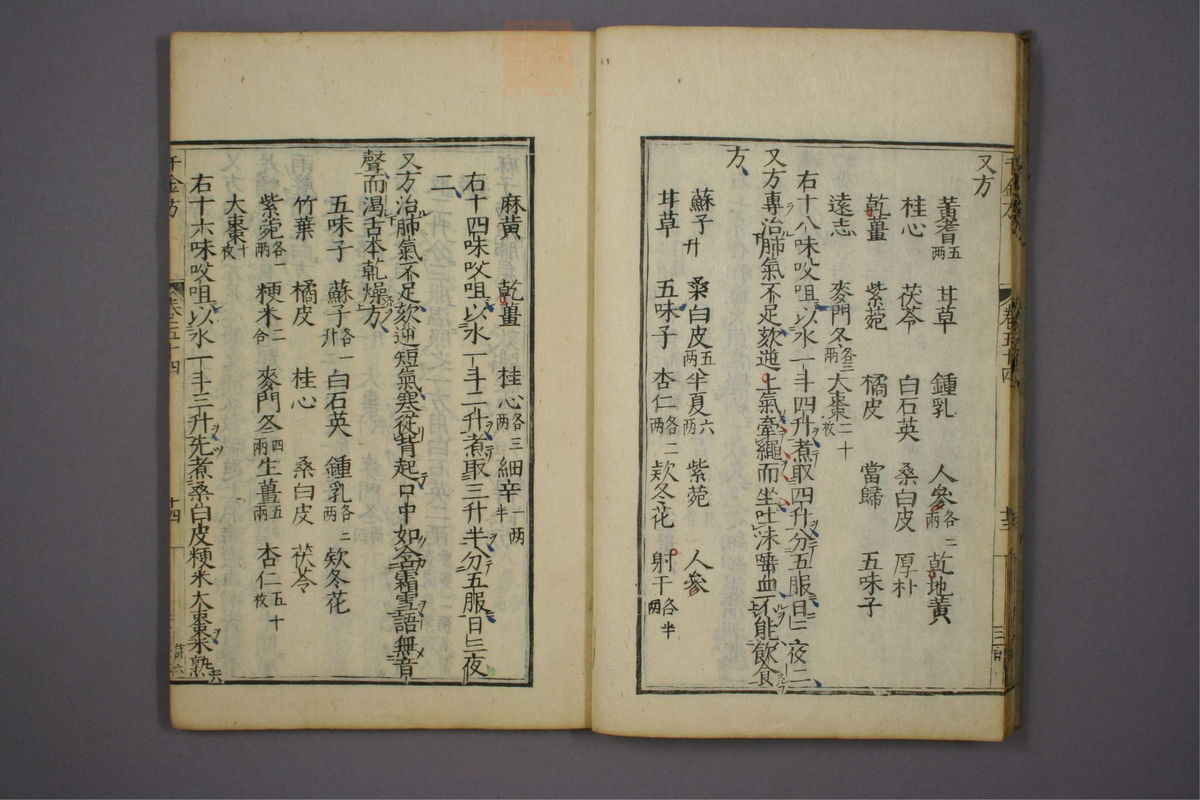 又方
黃耆五兩 甘草 鍾乳 人參各二兩 乾地黃
桂心 茯苓 白石英 桑白皮 厚朴
乾薑 紫菀 橘皮 當歸 五味子
遠志 麥門冬各三兩 大棗二十枚
右十八味㕮咀以水一斗四升煮取四升分五服日三夜二
又方專治肺氣不足欬逆上氣牽繩而坐吐沫唾血不能飲食
方
蘇子一升 桑白皮五兩 半夏六兩 紫菀 人參
甘草 五味子 杏仁各二兩 欵冬花 射干各半兩
麻黃 乾薑 桂心各三兩 細辛一兩半
右十四味㕮咀以水一斗二升煮取三升半分五服日三夜
二
又方治肺氣不足欬逆短氣寒從背起口中如含霜雪語無音
聲而渴舌本乾燥方
五味子 蘇子各一升 白石英 鍾乳各二兩 欵冬花
竹葉 橘皮 桂心 桑白皮 茯苓
紫菀各一兩 粳米二合 麥門冬四兩 生薑五兩 杏仁五十枚
大棗十枚
右十六味㕮咀以水一斗三升先煮桑白皮粳米大棗米熟去
千金方 卷五十四 十四